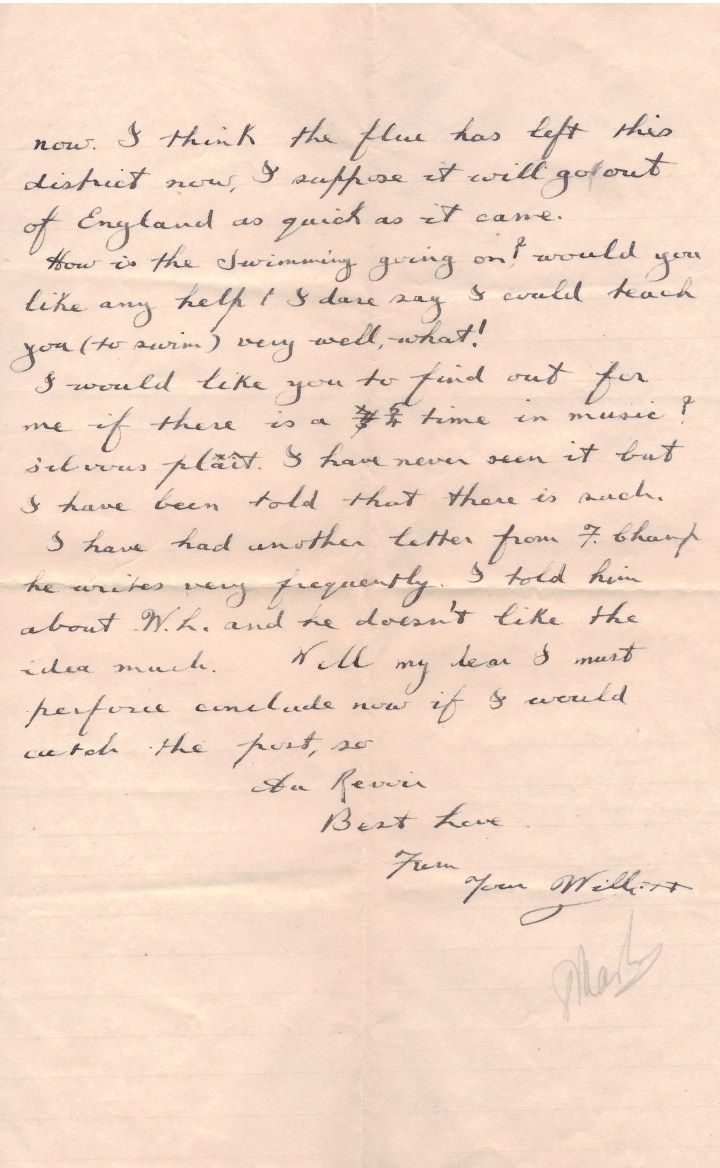 now. I think the flue has left this
district now, I suppose it will go out
of England as quick as it came.
How is the Swimming going on? would you
like any help! I dare say I could teach
you (to swim) very well, what!
I would like you to find out for
me if there is a time in music?
sil vous plait. I have never seen it but
I have been told that there is such.
I have had another letter from F. Champ
he writes very frequently. I told him
about W.h. and he doesn't like the
idea much. Well my dear I must
perforce conclude now if I would
catch the post, so
Au Revoir
Best Love
From
Your